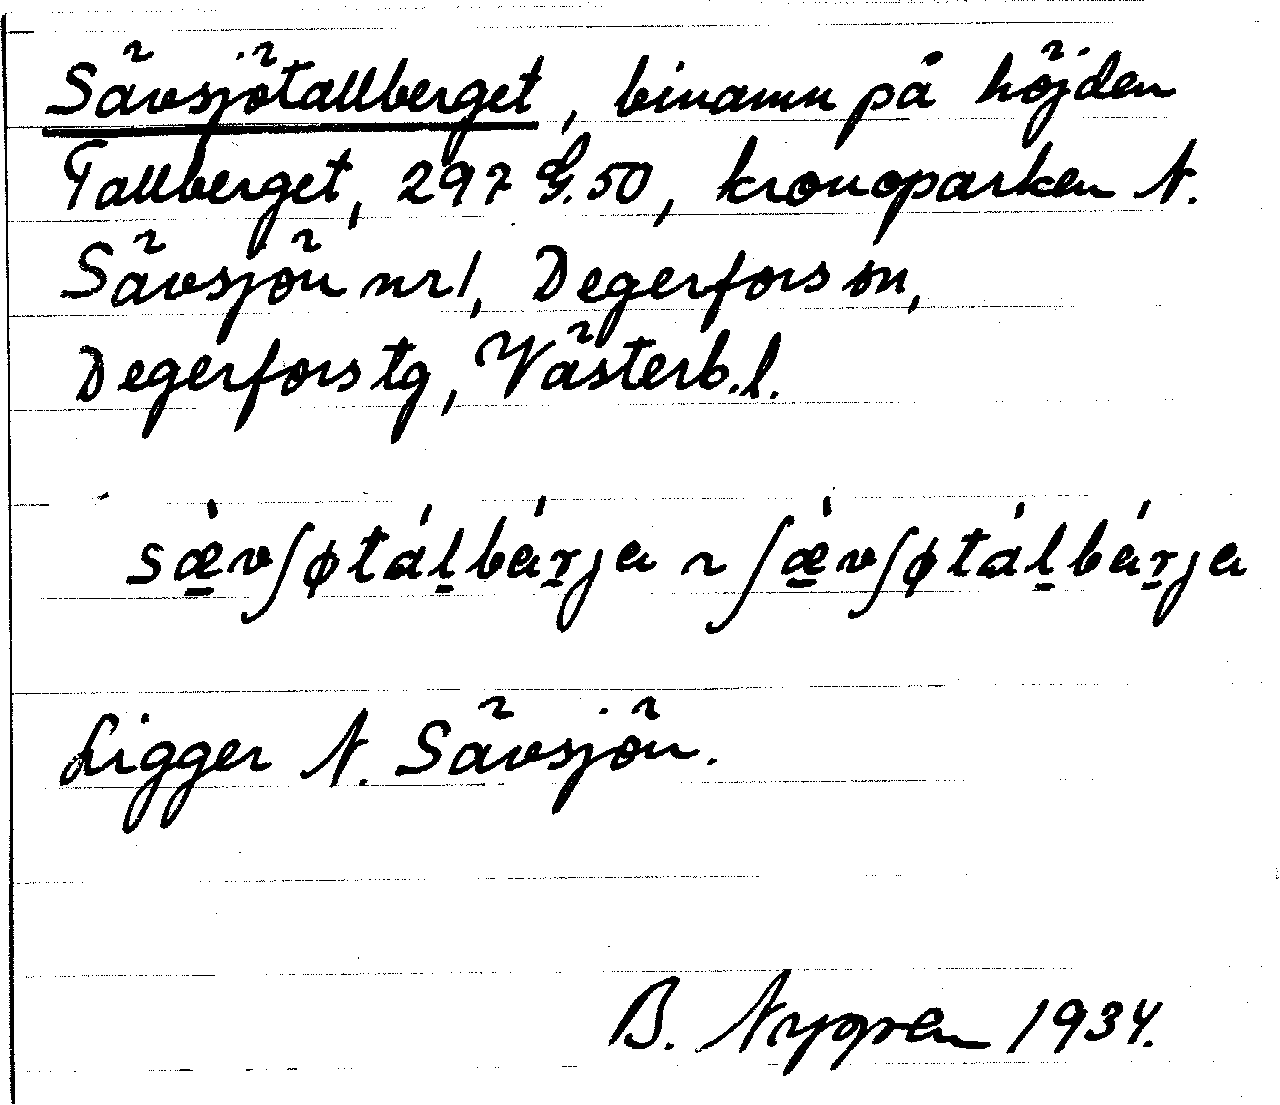 Sävsjötallberget, binamn på höjden
Tallberget, 297 G.50, kronoparken N.
Sävsjön nr 1, Degerfors sn,
Degerfors tg, Västerb.l.
sæ̱̀vʃøtáḻbáṟja ~ ʃæ̱̀vʃøtáḻbáṟja
Ligger N. Sävsjön.
B. Nygren 1934.